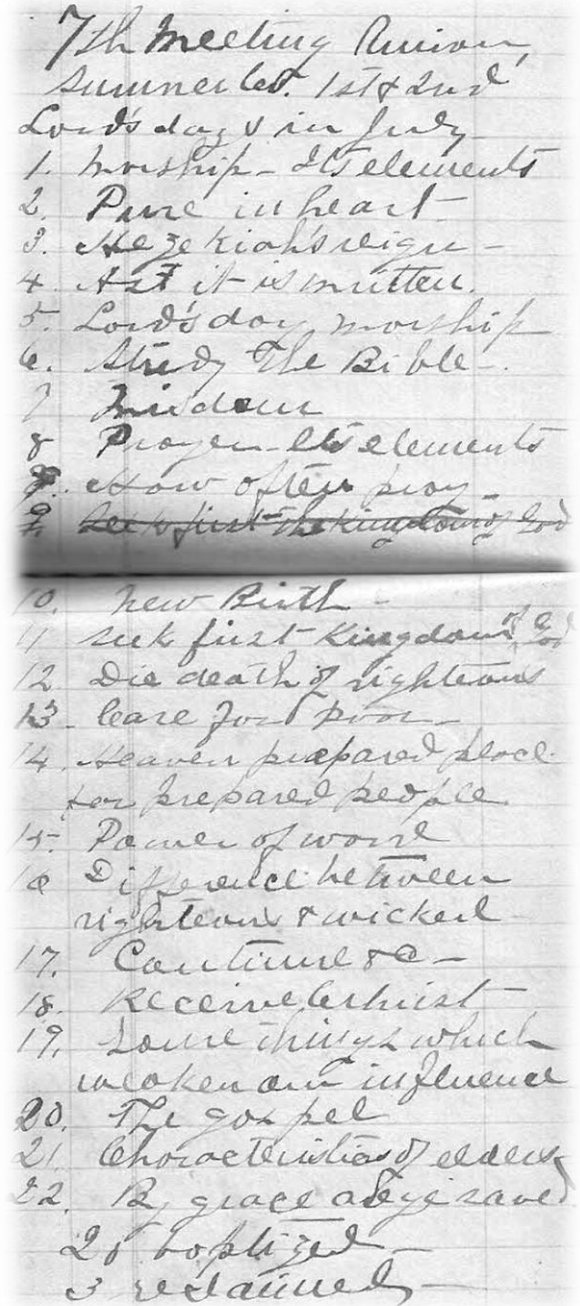 7th Meeting Union,
Sumner Co. 1st & 2nd
Lord's days in July
1. Worship - Its elements
2. Pure in heart -
3. Hezekiah's reign -
4. As it is written.
5. Lord's day worship
6. Study The Bible -.
7 Wisdom
8 Prayer - Its elements
9. How often pray -
9. Seek first the kingdom of God
10. New Birth -
11 Seek first Kingdom of God
12. Die death of righteous
13 Care for poor -
14. Heaven prepared place
for prepared people
15. Power of word
16 Difference between
righteous & wicked
17. Continue &c -
18. Receive Christ -
19. Some things which
weaken our influence
20. The gospel
21 Characteristics of elders
22. By grace are ye saved
25 baptized -
3 reclaimed -